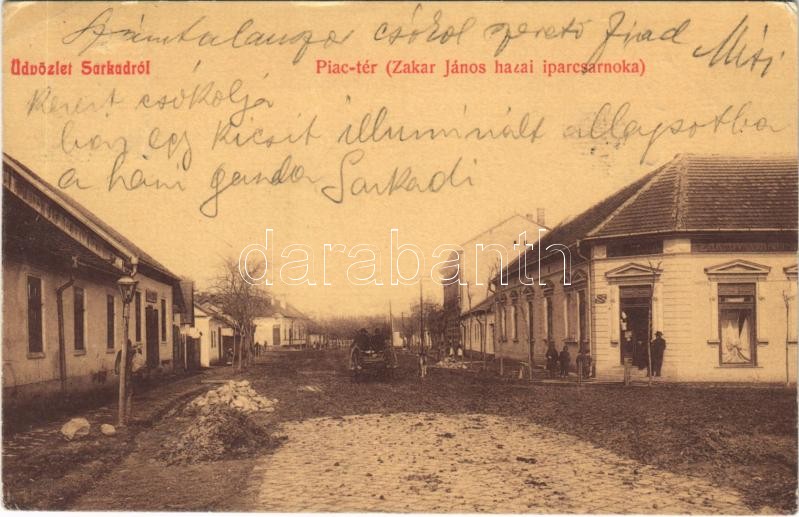 Számtalanszor csókol szerető fiad Misi
Üdvözlet Sarkadról
Piac-tér (Zakar János hazai iparcsarnoka)
csókolja
egy kicsit illuminált állapotba
a Sarkadi
darabanth